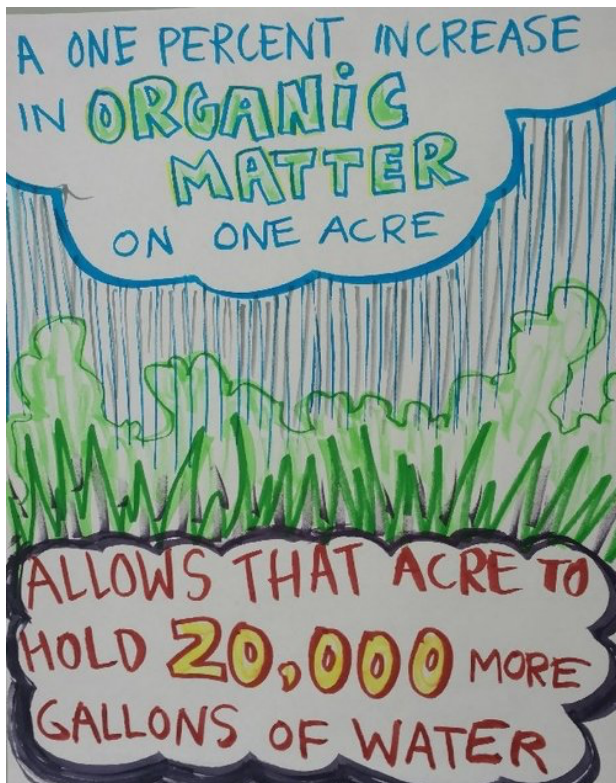 A ONE PERCENT INCREASE
IN ORGANIC
MATTER
ON ONE ACRE
ALLOWS THAT ACRE TO
HOLD 20,000 MORE
GALLONS OF WATER